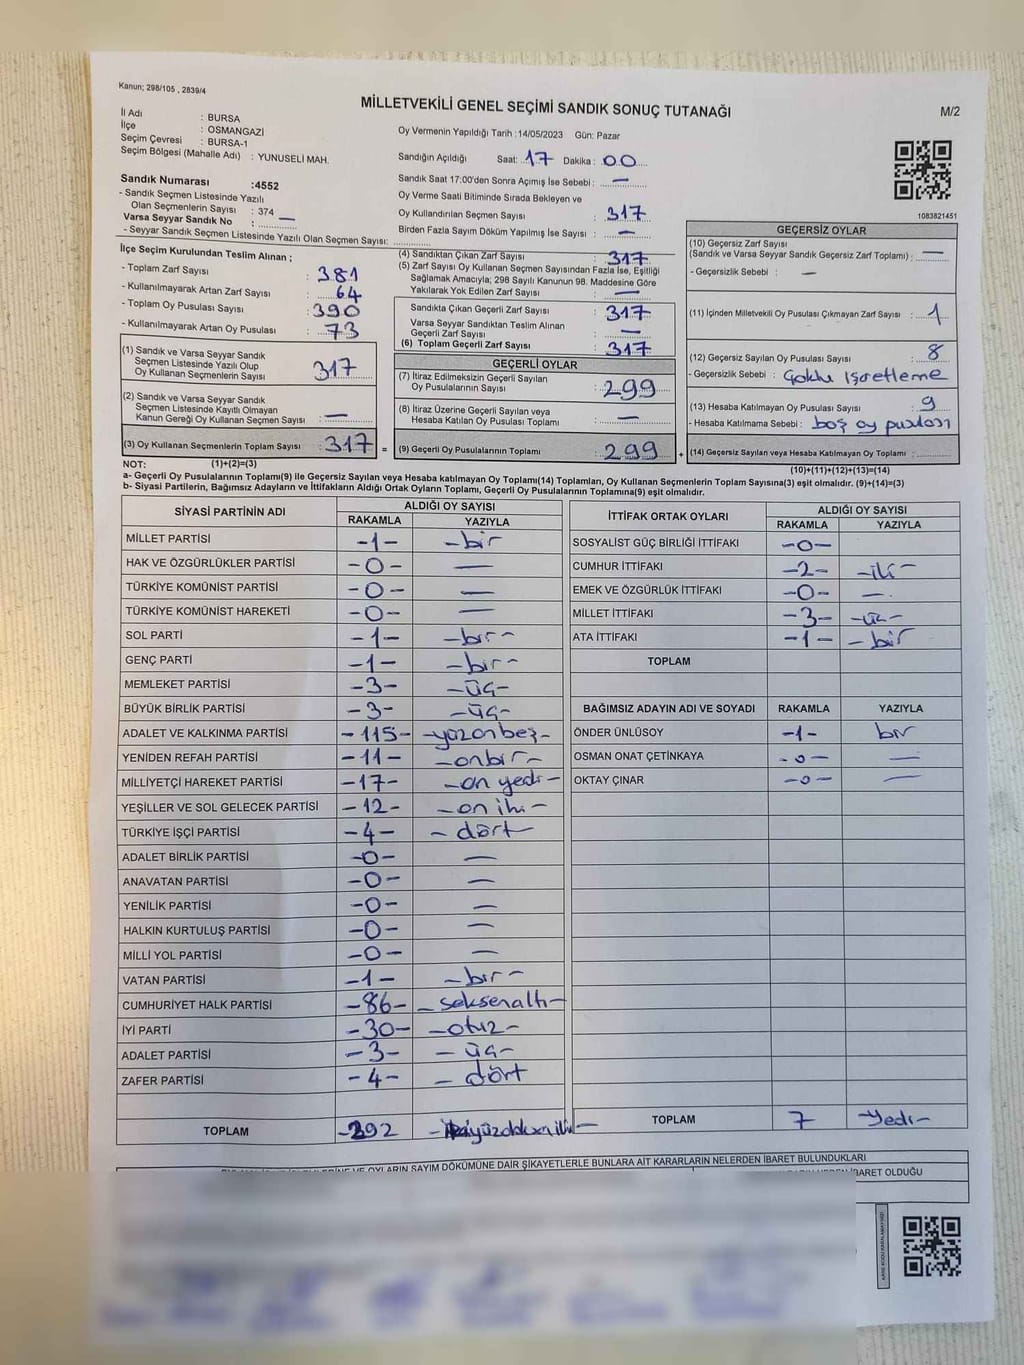 Kanun; 298/105 , 2839/4
MİLLETVEKİLİ GENEL SEÇİMİ SANDIK SONUÇ TUTANAĞI
M/2
İl Adı : BURSA
İlçe : OSMANGAZİ
Seçim Çevresi : BURSA-1
Seçim Bölgesi (Mahalle Adı) : YUNUSELİ MAH.
Sandık Numarası :4552
- Sandık Seçmen Listesinde Yazılı
Olan Seçmenlerin Sayısı : 374
Varsa Seyyar Sandık No : —
- Seyyar Sandık Seçmen Listesinde Yazılı Olan Seçmen Sayısı:
Oy Vermenin Yapıldığı Tarih :14/05/2023 Gün: Pazar
Sandığın Açıldığı Saat: 17 Dakika : 00
Sandık Saat 17:00'den Sonra Açımış İse Sebebi : —
Oy Verme Saati Bitiminde Sırada Bekleyen ve
Oy Kullandırılan Seçmen Sayısı : 317
Birden Fazla Sayım Döküm Yapılmış İse Sayısı : —
1083821451
İlçe Seçim Kurulundan Teslim Alınan ;
- Toplam Zarf Sayısı : 381
- Kullanılmayarak Artan Zarf Sayısı : 64
- Toplam Oy Pusulası Sayısı : 390
- Kullanılmayarak Artan Oy Pusulası : 73
(1) Sandık ve Varsa Seyyar Sandık
Seçmen Listesinde Yazılı Olup
Oy Kullanan Seçmenlerin Sayısı : 317
(2) Sandık ve Varsa Seyyar Sandık
Seçmen Listesinde Kayıtlı Olmayan
Kanun Gereği Oy Kullanan Seçmen Sayısı : —
(3) Oy Kullanan Seçmenlerin Toplam Sayısı : 317 =
(4) Sandıktan Çıkan Zarf Sayısı : 317
(5) Zarf Sayısı Oy Kullanan Seçmen Sayısından Fazla İse, Eşitliği
Sağlamak Amacıyla; 298 Sayılı Kanunun 98. Maddesine Göre
Yakılarak Yok Edilen Zarf Sayısı : —
Sandıkta Çıkan Geçerli Zarf Sayısı : 317
Varsa Seyyar Sandıktan Teslim Alınan
Geçerli Zarf Sayısı : —
(6) Toplam Geçerli Zarf Sayısı : 317
GEÇERLİ OYLAR
(7) İtiraz Edilmeksizin Geçerli Sayılan
Oy Pusulalarının Sayısı : 299
(8) İtiraz Üzerine Geçerli Sayılan veya
Hesaba Katılan Oy Pusulası Toplamı : —
(9) Geçerli Oy Pusulalarının Toplamı : 299 +
GEÇERSİZ OYLAR
(10) Geçersiz Zarf Sayısı
(Sandık ve Varsa Seyyar Sandık Geçersiz Zarf Toplamı) : —
- Geçersizlik Sebebi : —
(11) İçinden Milletvekili Oy Pusulası Çıkmayan Zarf Sayısı : 1
(12) Geçersiz Sayılan Oy Pusulası Sayısı : 8
- Geçersizlik Sebebi : Çoklu İşaretleme
(13) Hesaba Katılmayan Oy Pusulası Sayısı : 9
- Hesaba Katılmama Sebebi : boş oy pusulası
(14) Geçersiz Sayılan veya Hesaba Katılmayan Oy Toplamı :
NOT: (1)+(2)=(3)
(10)+(11)+(12)+(13)=(14)
a- Geçerli Oy Pusulalarının Toplamı(9) ile Geçersiz Sayılan veya Hesaba katılmayan Oy Toplamı(14) Toplamları, Oy Kullanan Seçmenlerin Toplam Sayısına(3) eşit olmalıdır. (9)+(14)=(3)
b- Siyasi Partilerin, Bağımsız Adayların ve İttifakların Aldığı Ortak Oyların Toplamı, Geçerli Oy Pusulalarının Toplamına(9) eşit olmalıdır.
SİYASİ PARTİNİN ADI ALDIĞI OY SAYISI
RAKAMLA YAZIYLA
MİLLET PARTİSİ -1- -bir
HAK VE ÖZGÜRLÜKLER PARTİSİ -0- —
TÜRKİYE KOMÜNİST PARTİSİ -0- —
TÜRKİYE KOMÜNİST HAREKETİ -0- —
SOL PARTİ -1- -bir-
GENÇ PARTİ -1- -bir-
MEMLEKET PARTİSİ -3- -üç-
BÜYÜK BİRLİK PARTİSİ -3- -üç-
ADALET VE KALKINMA PARTİSİ -115- -yüzonbeş-
YENİDEN REFAH PARTİSİ -11- -onbir-
MİLLİYETÇİ HAREKET PARTİSİ -17- -on yedi-
YEŞİLLER VE SOL GELECEK PARTİSİ -12- -on iki-
TÜRKİYE İŞÇİ PARTİSİ -4- - dört-
ADALET BİRLİK PARTİSİ -0- —
ANAVATAN PARTİSİ -0- —
YENİLİK PARTİSİ -0- —
HALKIN KURTULUŞ PARTİSİ -0- —
MİLLİ YOL PARTİSİ -0- —
VATAN PARTİSİ -1- -bir-
CUMHURİYET HALK PARTİSİ -86- - seksenaltı-
İYİ PARTİ -30- -otuz-
ADALET PARTİSİ -3- - üç-
ZAFER PARTİSİ -4- - dört
TOPLAM -292 -ikiyüzdoksaniki-
İTTİFAK ORTAK OYLARI ALDIĞI OY SAYISI
RAKAMLA YAZIYLA
SOSYALİST GÜÇ BİRLİĞİ İTTİFAKI -0-
CUMHUR İTTİFAKI -2- -iki-
EMEK VE ÖZGÜRLÜK İTTİFAKI -0- —
MİLLET İTTİFAKI -3- -üç-
ATA İTTİFAKI -1- - bir
TOPLAM
BAĞIMSIZ ADAYIN ADI VE SOYADI RAKAMLA YAZIYLA
ÖNDER ÜNLÜSOY -1- bir
OSMAN ONAT ÇETİNKAYA -0- —
OKTAY ÇINAR -0- —
TOPLAM 7 Yedi-
OYLARIN SAYIM DÖKÜMÜNE DAİR ŞİKAYETLERLE BUNLARA AİT KARARLARIN NELERDEN İBARET BULUNDUKLARI
İBARET OLDUĞU